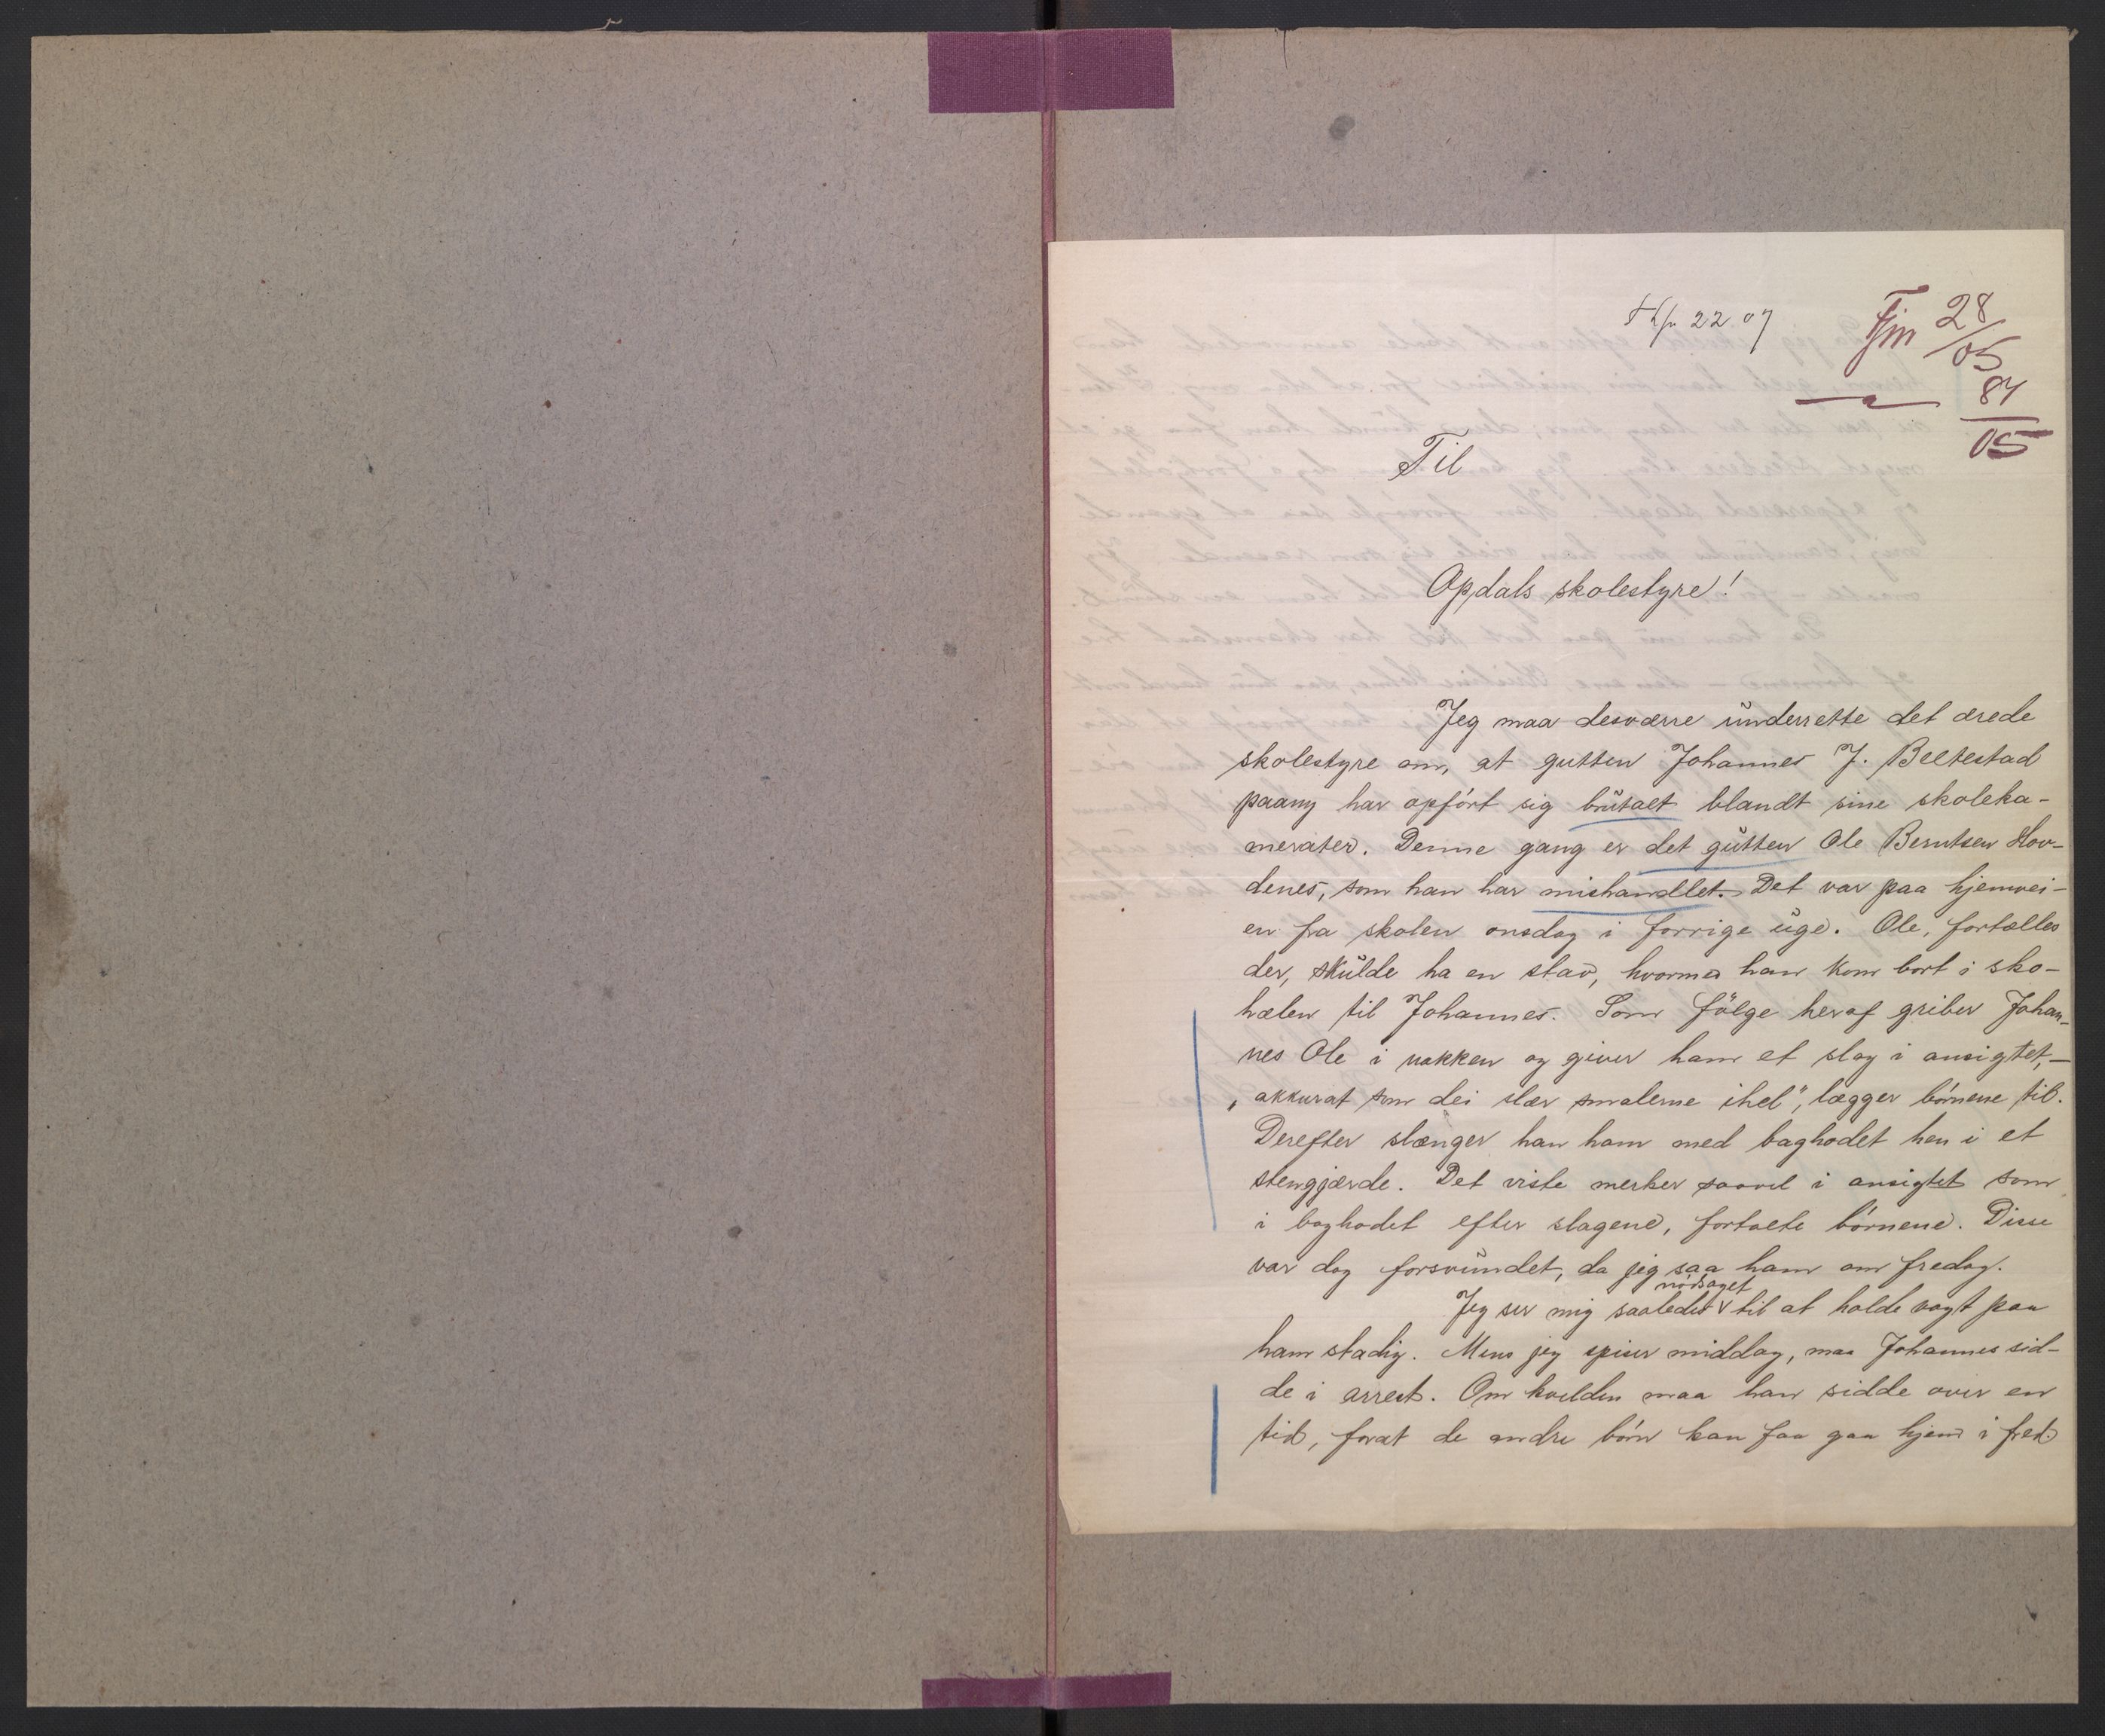 22 07
Fjm 28/05
84/05
Til
Opdals skolestyre!
Jeg maa desværre underrette det ærede
skolestyre om, at gutten Johannes J. Beltestad
paany har opført sig brutalt blandt sine skoleka-
merater. Denne gang er det gutten Ole Berntsen Hov-
denes, som han har mishandlet. Det var paa hjemvei-
en fra skolen onsdag i forrige uge. Ole, fortælles
der, skulde ha en stav, hvormed han kom bort i sko-
hælen til Johannes. Som følge heraf griber Johan-
nes Ole i nakken og giver ham et slag i ansigtet, —
„akkurat som dei slær smalerne ihel", lægger børnene til.
Derefter slænger han ham med baghodet hen i et
stengjærde. Det viste merker saavel i ansigtet som
i baghodet efter slagene, fortalte børnene. Disse
var dog forsvundet, da jeg saa ham om fredag.
Jeg ser mig saaledes nødsaget til at holde vagt paa
ham stadig. Mens jeg spiser middag, maa Johannes sid-
de i arrest. Om kvelden maa han sidde over en
tid, forat de andre børn kan faa gaa hjem i fred.